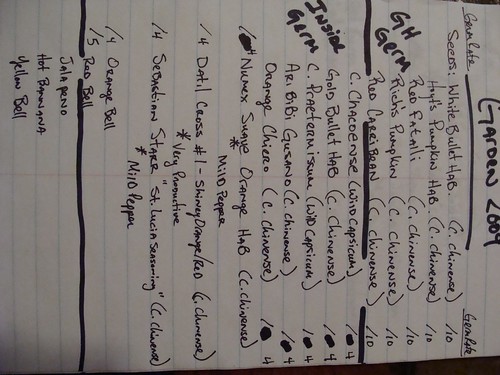 GARDEN 2009
Germ Rate Germ Rate
SEEDS: WHITE BULLET HAB. (C. chinense) /10
PUMPKIN HAB. (C. chinense) /10
GH Germ
RED FATALII (C. chinense) /10
RICH'S PUMPKIN (C. chinense) /10
RED CARRIBEAN (C. chinense) /10
C. CHACOENSE (WILD CAPSICUM) / 4
INSIDE Germ
GOLD BULLET HAB (C. chinense) / 4
C. PRAETERMISSUM (WILD CAPSICUM) / 4
ARIBIBI GUSANO (C. chinense) / 4
ORANGE CHIERO (C. chinense) / 4
/4 NUMEX SUAVE ORANGE HAB (C. chinense)
* MILD PEPPER
/4 DATIL CROSS #1 - SHINEY ORANGE/RED (C. chinense)
* VERY PRODUCTIVE
/4 SEBASTIAN STARR "ST. LUCIA SEASONING" (C. chinense)
* MILD PEPPER
/4 ORANGE BELL
/5 RED BELL
JALAPENO
HOT BANNANA
YELLOW BELL